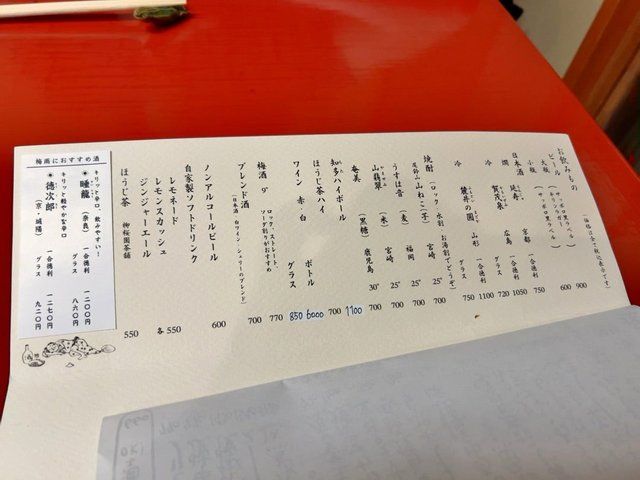 お飲みもの
(価格は全て税込表示です)
ビール
大瓶 (サッポロ黒ラベル) 900
小瓶 (サッポロ黒ラベル) 600
日本酒 延寿 京都 一合徳利 1050
グラス 720
燗 賀茂泉 広島 一合徳利 1100
冷 麓井の圓 山形 グラス 750
焼酎 (ロック 水割 お湯割でどうぞ)
尾鈴山 山ねこ (芋) 宮崎 25° 700
うすは音 (麦) 福岡 25° 700
山翡翠 (米) 宮崎 25° 700
奄美 (黒糖) 鹿児島 30° 700
知多ハイボール 1100
ほうじ茶ハイ 700
ワイン 赤・白 ボトル 6000
グラス 850
梅酒 9° ロック、ストレート、ソーダ割りがおすすめ 770
ブレンド酒 (日本酒 白ワイン シェリーのブレンド) 700
ノンアルコールビール 600
自家製ソフトドリンク 各 550
レモネード
レモンスカッシュ
ジンジャーエール
ほうじ茶 柳桜園茶舗 550
梅雨におすすめ酒
キリッと辛口、飲みやすい!
睡龍 (奈良) 一合徳利 一二〇〇円
グラス 八六〇円
キリッと軽やかな辛口
徳次郎 (京・城陽) 一合徳利 一二七〇円
グラス 九二〇円